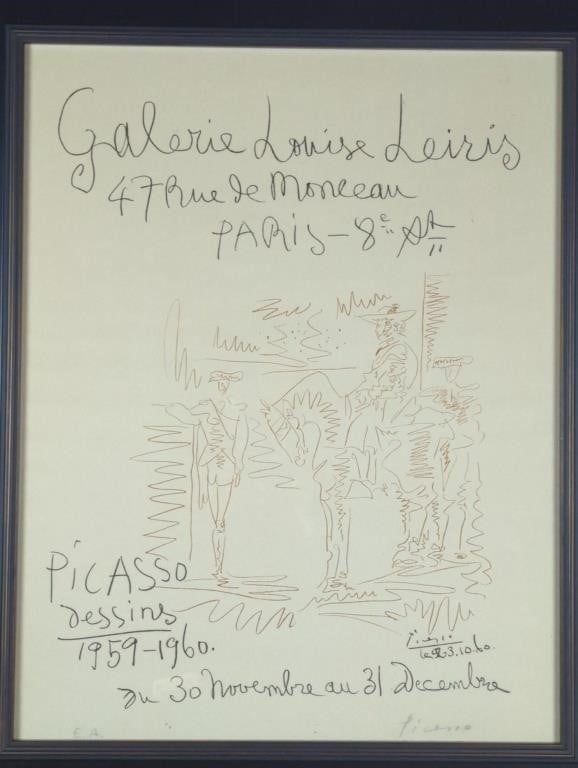 Galerie Louise Leiris
47 Rue de Monceau
PARIS - 8e Art
PiCASSO
dessins
1959-1960.
Picasso
le 3.10.60.
du 30 Novembre au 31 Decembre
E.A.
Picasso